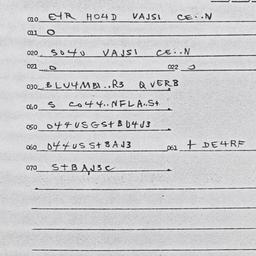 010 E4R HO4D VAJSI CE..N
011 O
020 SO4U VAJSI CE..N
021 O 022 J
030 BLU4MBI..R3 QVERB
060 S CO44..NFLA..S+
050 O44USGS+BD4J3
060 O44USS+BAJ3 061 + DE4RF
070 S+BAJ3C